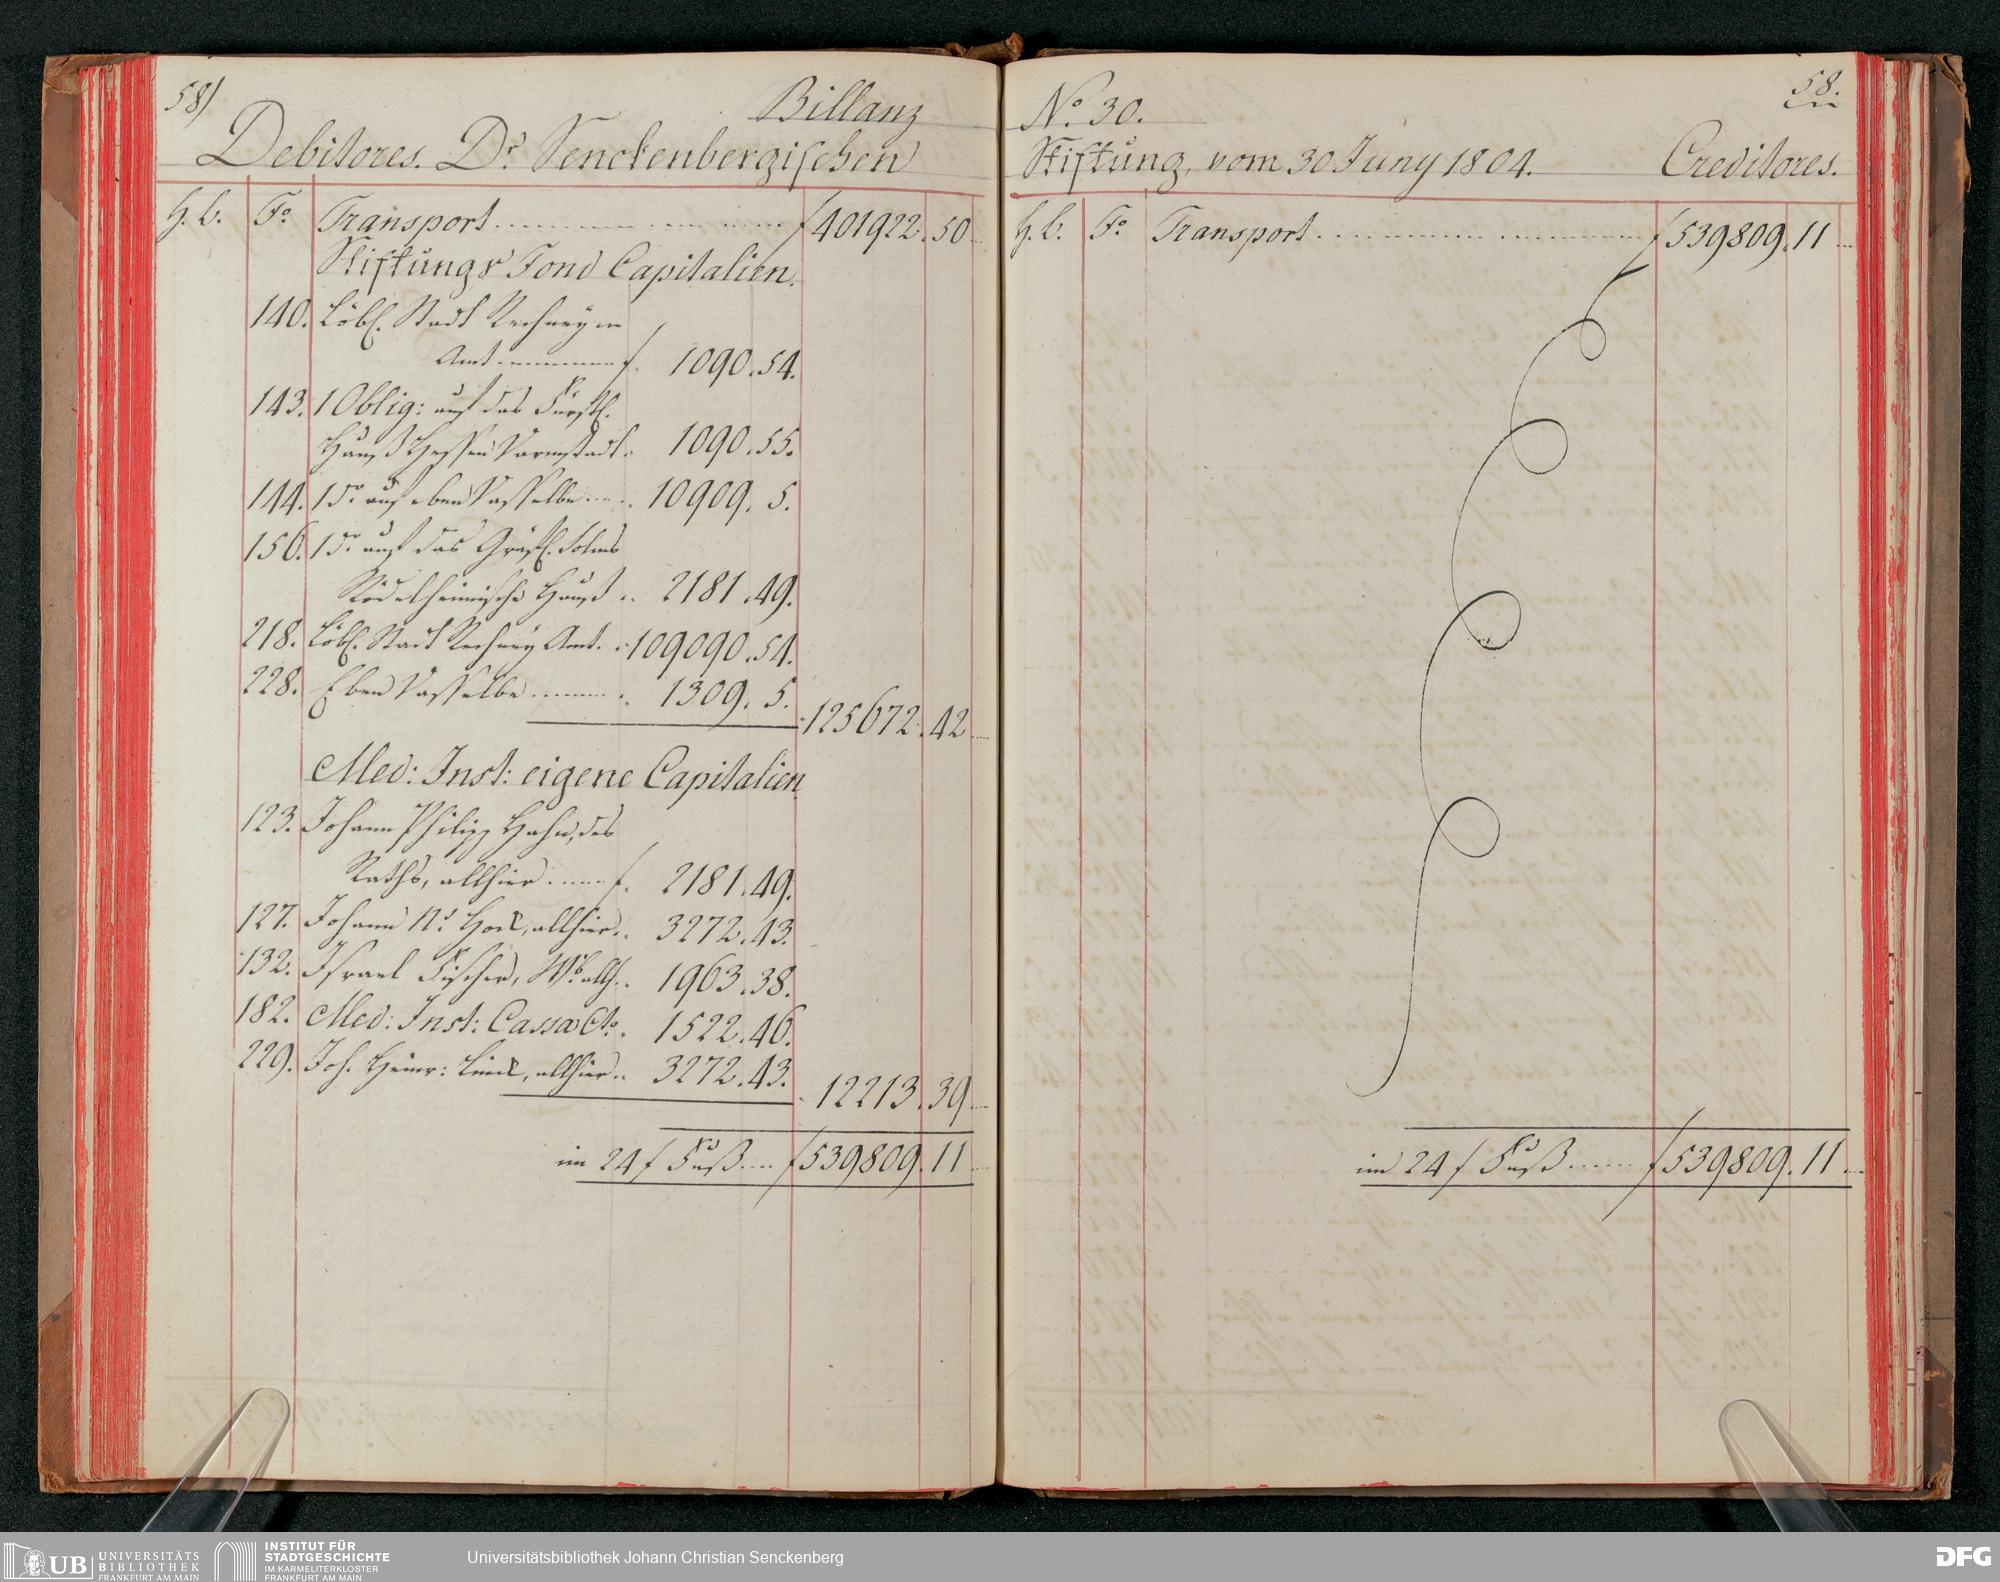 58)
Billanz
Debitores. Dr. Senckenbergischen
H. b. Fo. Transport f 401922. 50
Stiftungs Fond Capitalien.
140. Löbl. Stadt Rechney
Amt f. 1090.54.
143. 1 Oblig: auf das Fürstl.
Hauß Hessen Darmstadt. 1090.55.
144. 1 do. auf eben dasselbe 10909. 5.
156. 1 do. auf das Gräfl. Solms
Rödelheimische Hauß 2181.49.
218. Löbl. Stadt Rechney Amt. 109090.54.
228. Eben dasselbe 1309. 5.
125672. 42
Med: Inst: eigene Capitalien
123. Johann Philipp Hahn, des
Raths, allhier f. 2181.49.
127. Johann allhier 3272.43.
132. Israel Fischer, 1963.38.
182. Med: Inst: Cassa Cto. 1522.46.
229. Joh. Heinr: allhier 3272.43.
12213. 39
im 24 f Fuß f 539809. 11
No. 30.
58.
Stiftung, vom 30 Juny 1804. Creditores.
H. b. Fo. Transport f 539809. 11
im 24 f Fuß f 539809. 11
UB UNIVERSITÄTS
BIBLIOTHEK
FRANKFURT AM MAIN
INSTITUT FÜR
STADTGESCHICHTE
IM KARMELITERKLOSTER
FRANKFURT AM MAIN
Universitätsbibliothek Johann Christian Senckenberg
DFG